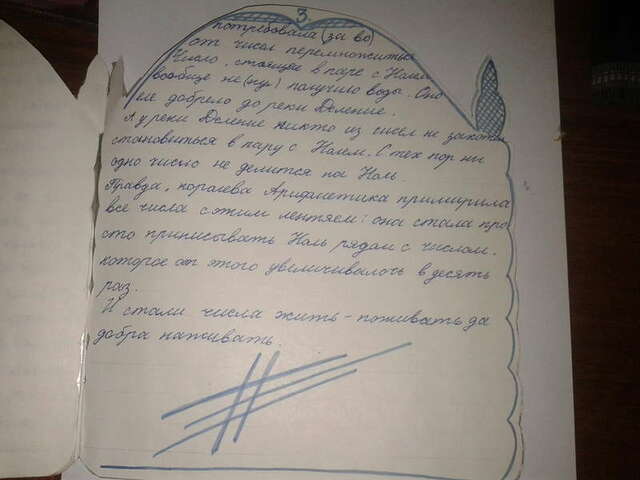 3.
потребовала (за во)
от чисел перемножиться
Число, стоящее в паре с Нолем
вообще не получило воды. Оно
еле добрело до реки Деление.
А у реки Деление никто из чисел не захотел
становиться в пару с Нолем. С тех пор ни
одно число не делится на Ноль.
Правда, королева Арифметика примирила
все числа с этим лентяем: она стала про
сто приписывать Ноль рядом с числом,
которое от этого увеличивалось в десять
раз.
И стали числа жить - поживать да
добра наживать.